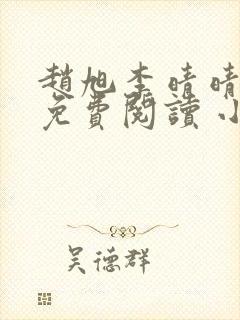 趙旭李晴晴
免費閱讀小
吴德群